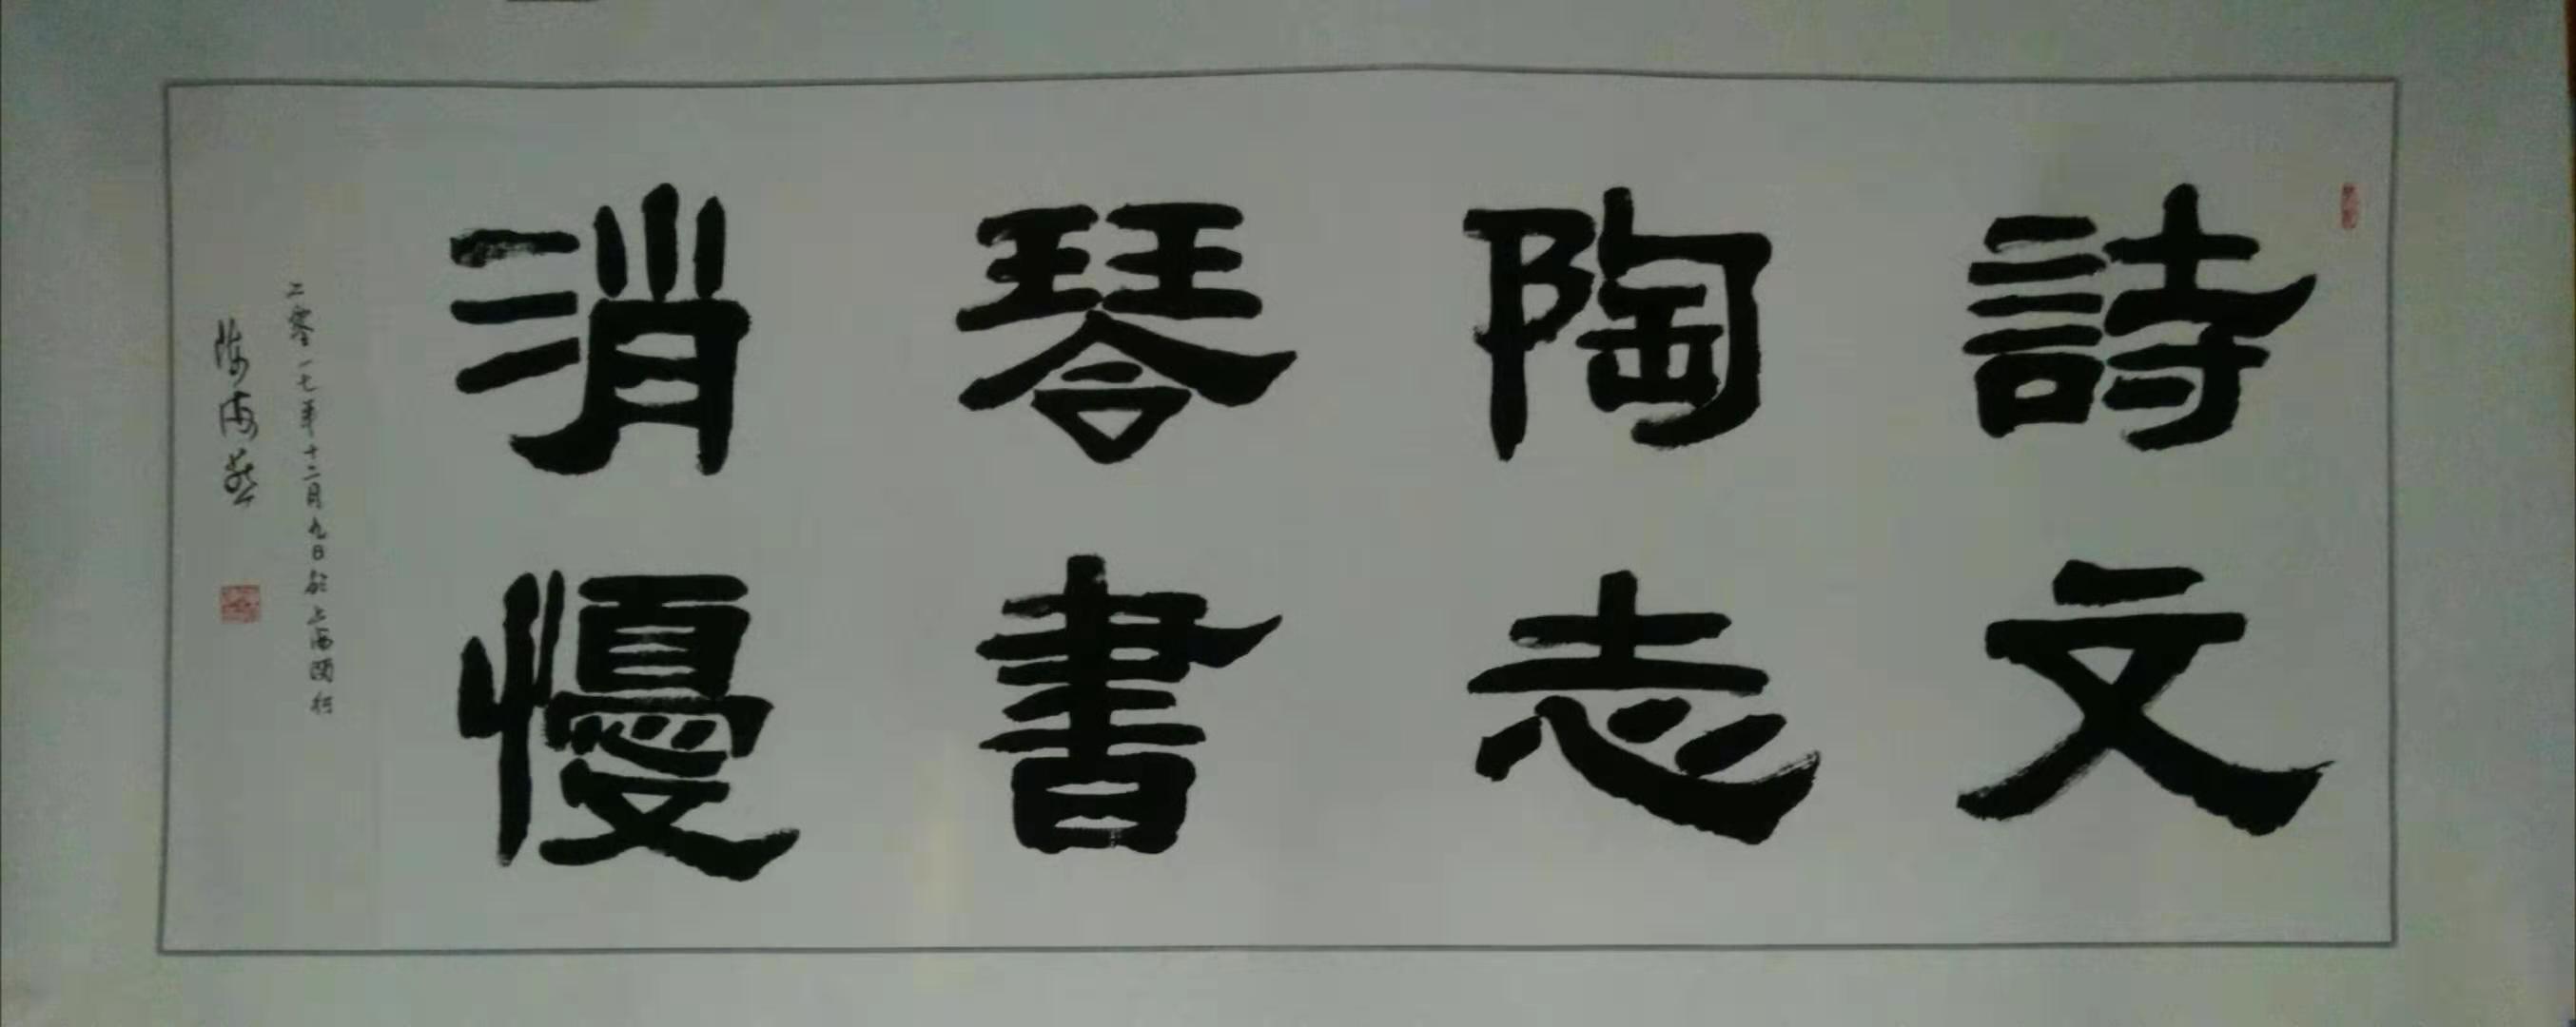 詩文
陶志
琴書
消懮
二零一七年十二月九日於上海閔行